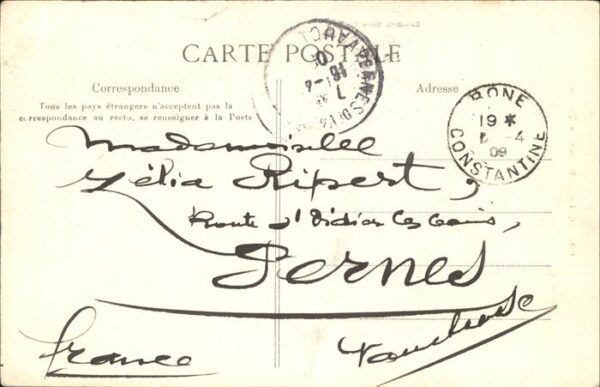 CARTE POSTALE
Correspondance
Adresse
Tous les pays étrangers n'acceptent pas la
correspondance au recto, se renseigner à la Poste
BONE
CONSTANTINE
19 *
5 -4
09
Mademoiselle
Zélia Ripert,
Route St Didier les Bains,
Pernes
Vaucluse
France